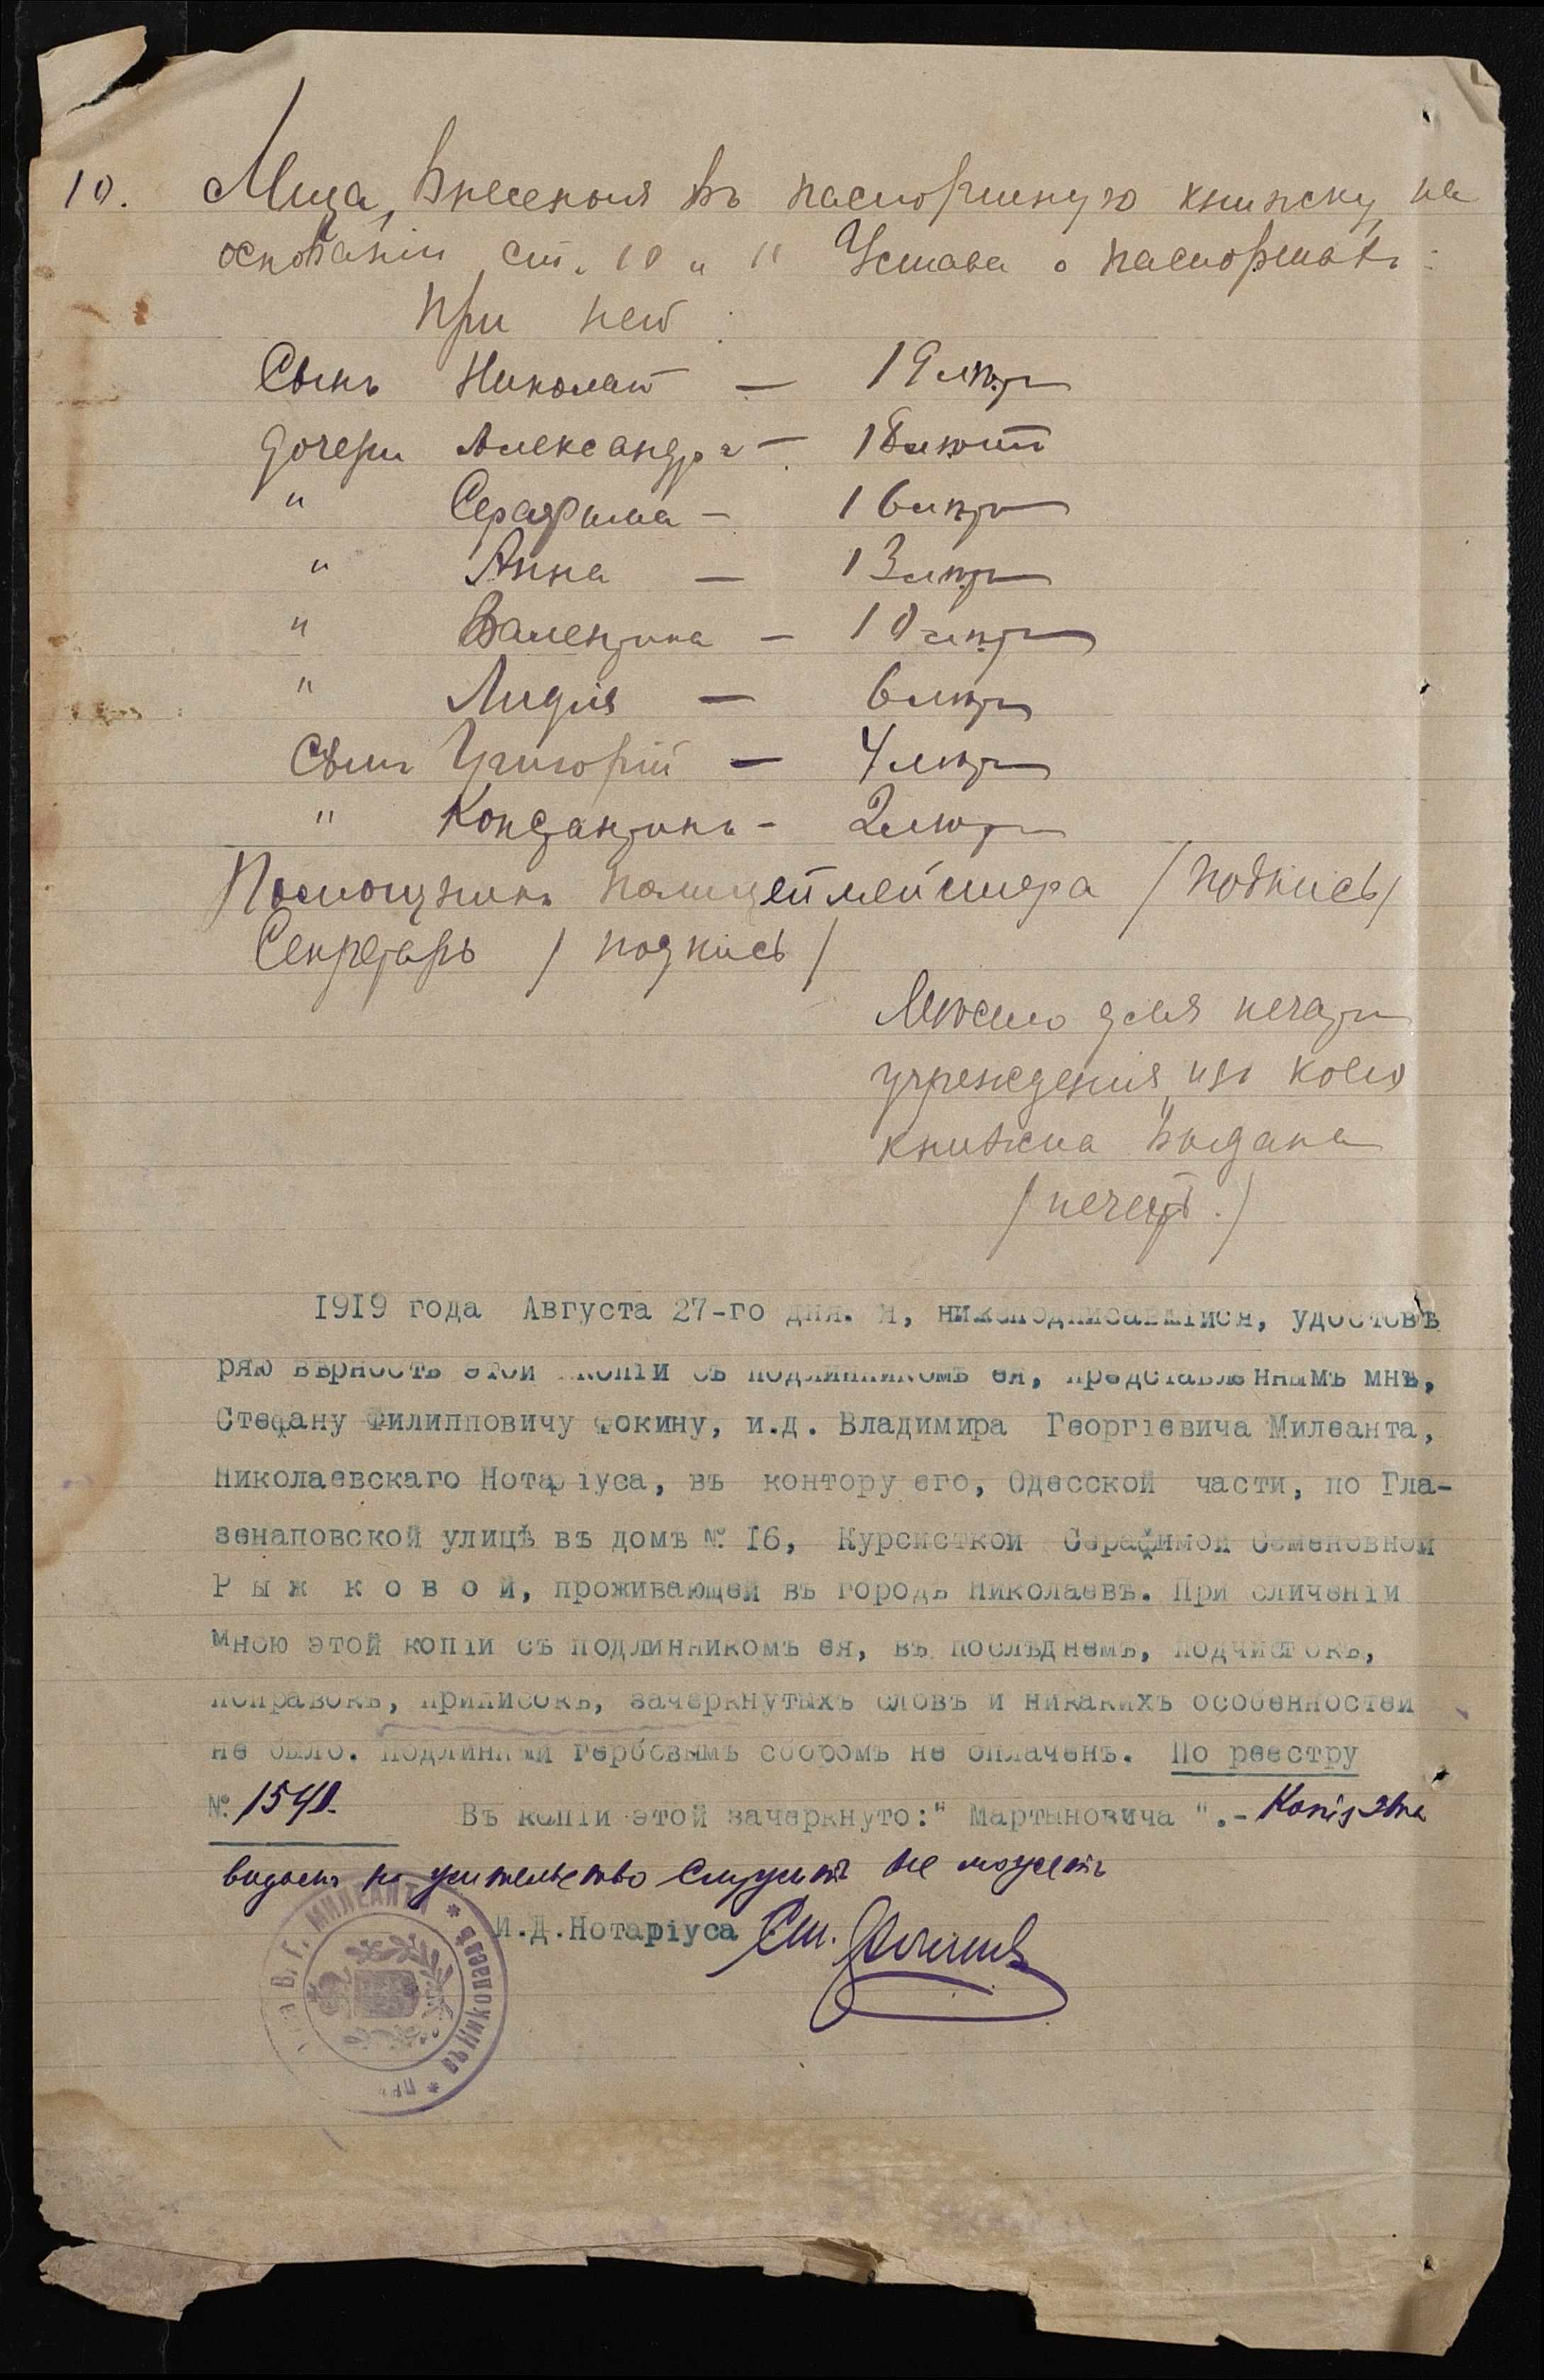 10. Лица, внесенныя въ паспортную книжку, на
основаніи ст. 10 и 11 Устава о паспортахъ:
При ней:
Сынъ Николай — 19 лѣтъ
дочери Александра — 18 лѣтъ
" Серафима — 16 лѣтъ
" Анна — 13 лѣтъ
" Валентина — 10 лѣтъ
" Лидія — 6 лѣтъ
Сынъ Григорій — 4 лѣтъ
" Константинъ — 2 лѣтъ
Помощникъ полицеймейстера /подпись/
Секретарь /подпись/
Мѣсто для печати
учрежденія, изъ коего
книжка выдана
/печать./
1919 года Августа 27-го дня. Я, нижеподписавшійся, удостовѣ
ряю вѣрность этой копіи съ подлинникомъ ея, представленнымъ мнѣ,
Стефану Филипповичу Фокину, и.д. Владимира Георгіевича Милеанта,
Николаевскаго Нотаріуса, въ контору его, Одесской части, по Гла-
зенаповской улицѣ въ домѣ № 16, Курсисткой Серафимой Семеновной
Р ы ж к о в о й, проживающей въ городѣ Николаевѣ. При сличеніи
мною этой копіи съ подлинникомъ ея, въ послѣднемъ, подчистокъ,
поправокъ, приписокъ, зачеркнутыхъ словъ и никакихъ особенностей
не было. Подлинный гербовымъ сборомъ не оплаченъ. По реестру
№ 1540. Въ копіи этой зачеркнуто:" Мартыновича ".- Копія эта
видомъ на жительство служить не можетъ
И.Д.Нотаріуса Ст. Фокинъ
В. Г. МИЛЕАНТА * въ Николаевѣ *